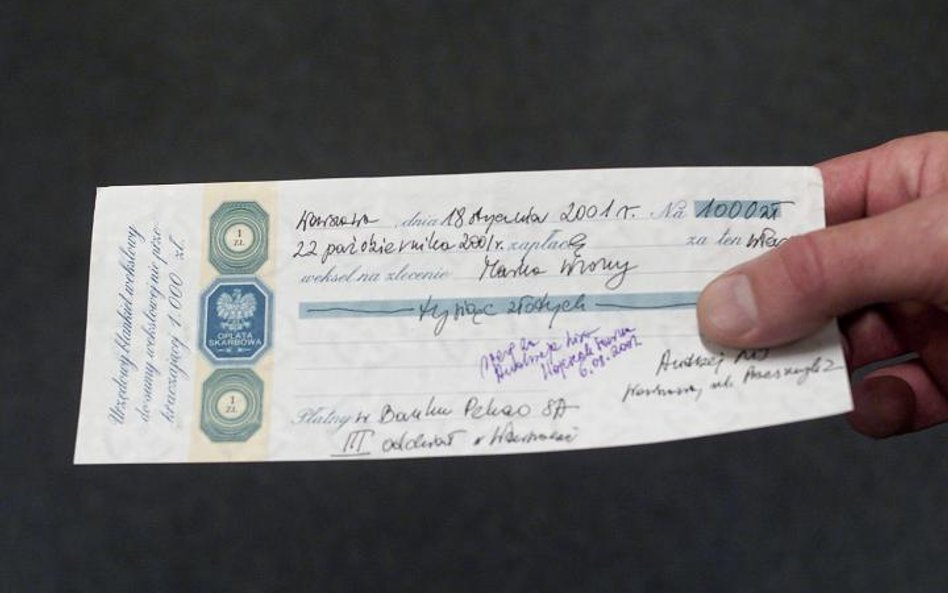 Urzędowy blankiet wekslowy
do sumy wekslowej nie prze-
kraczającej 1.000 zł.
1
ZŁ
OPŁATA
SKARBOWA
1
ZŁ
Warszawa, dnia 18 stycznia 2001 r. Na 1000 zł
22 października 2001 r. zapłacę za ten
weksel na zlecenie Marka Wrony
tysiąc złotych
6.08.2001
Andrzej
Warszawa, ul. 2
Płatny w Banku Pekao SA
III oddział w Warszawie